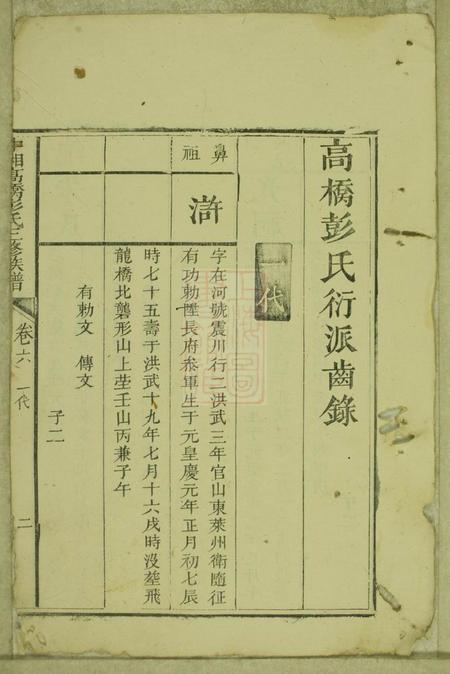 高橋彭氏衍派齒錄
一代
鼻祖
滸
字在河號震川行二洪武三年官山東萊州衛隨征
有功勅陞長府叅軍生于元皇慶元年正月初七辰
時七十五壽于洪武十九年七月十六戌時沒塟飛
龍橋北龔形山上塋壬山丙兼子午
有勅文 傳文
子二
中湘高橋彭氏三修族譜
卷六 一代
二